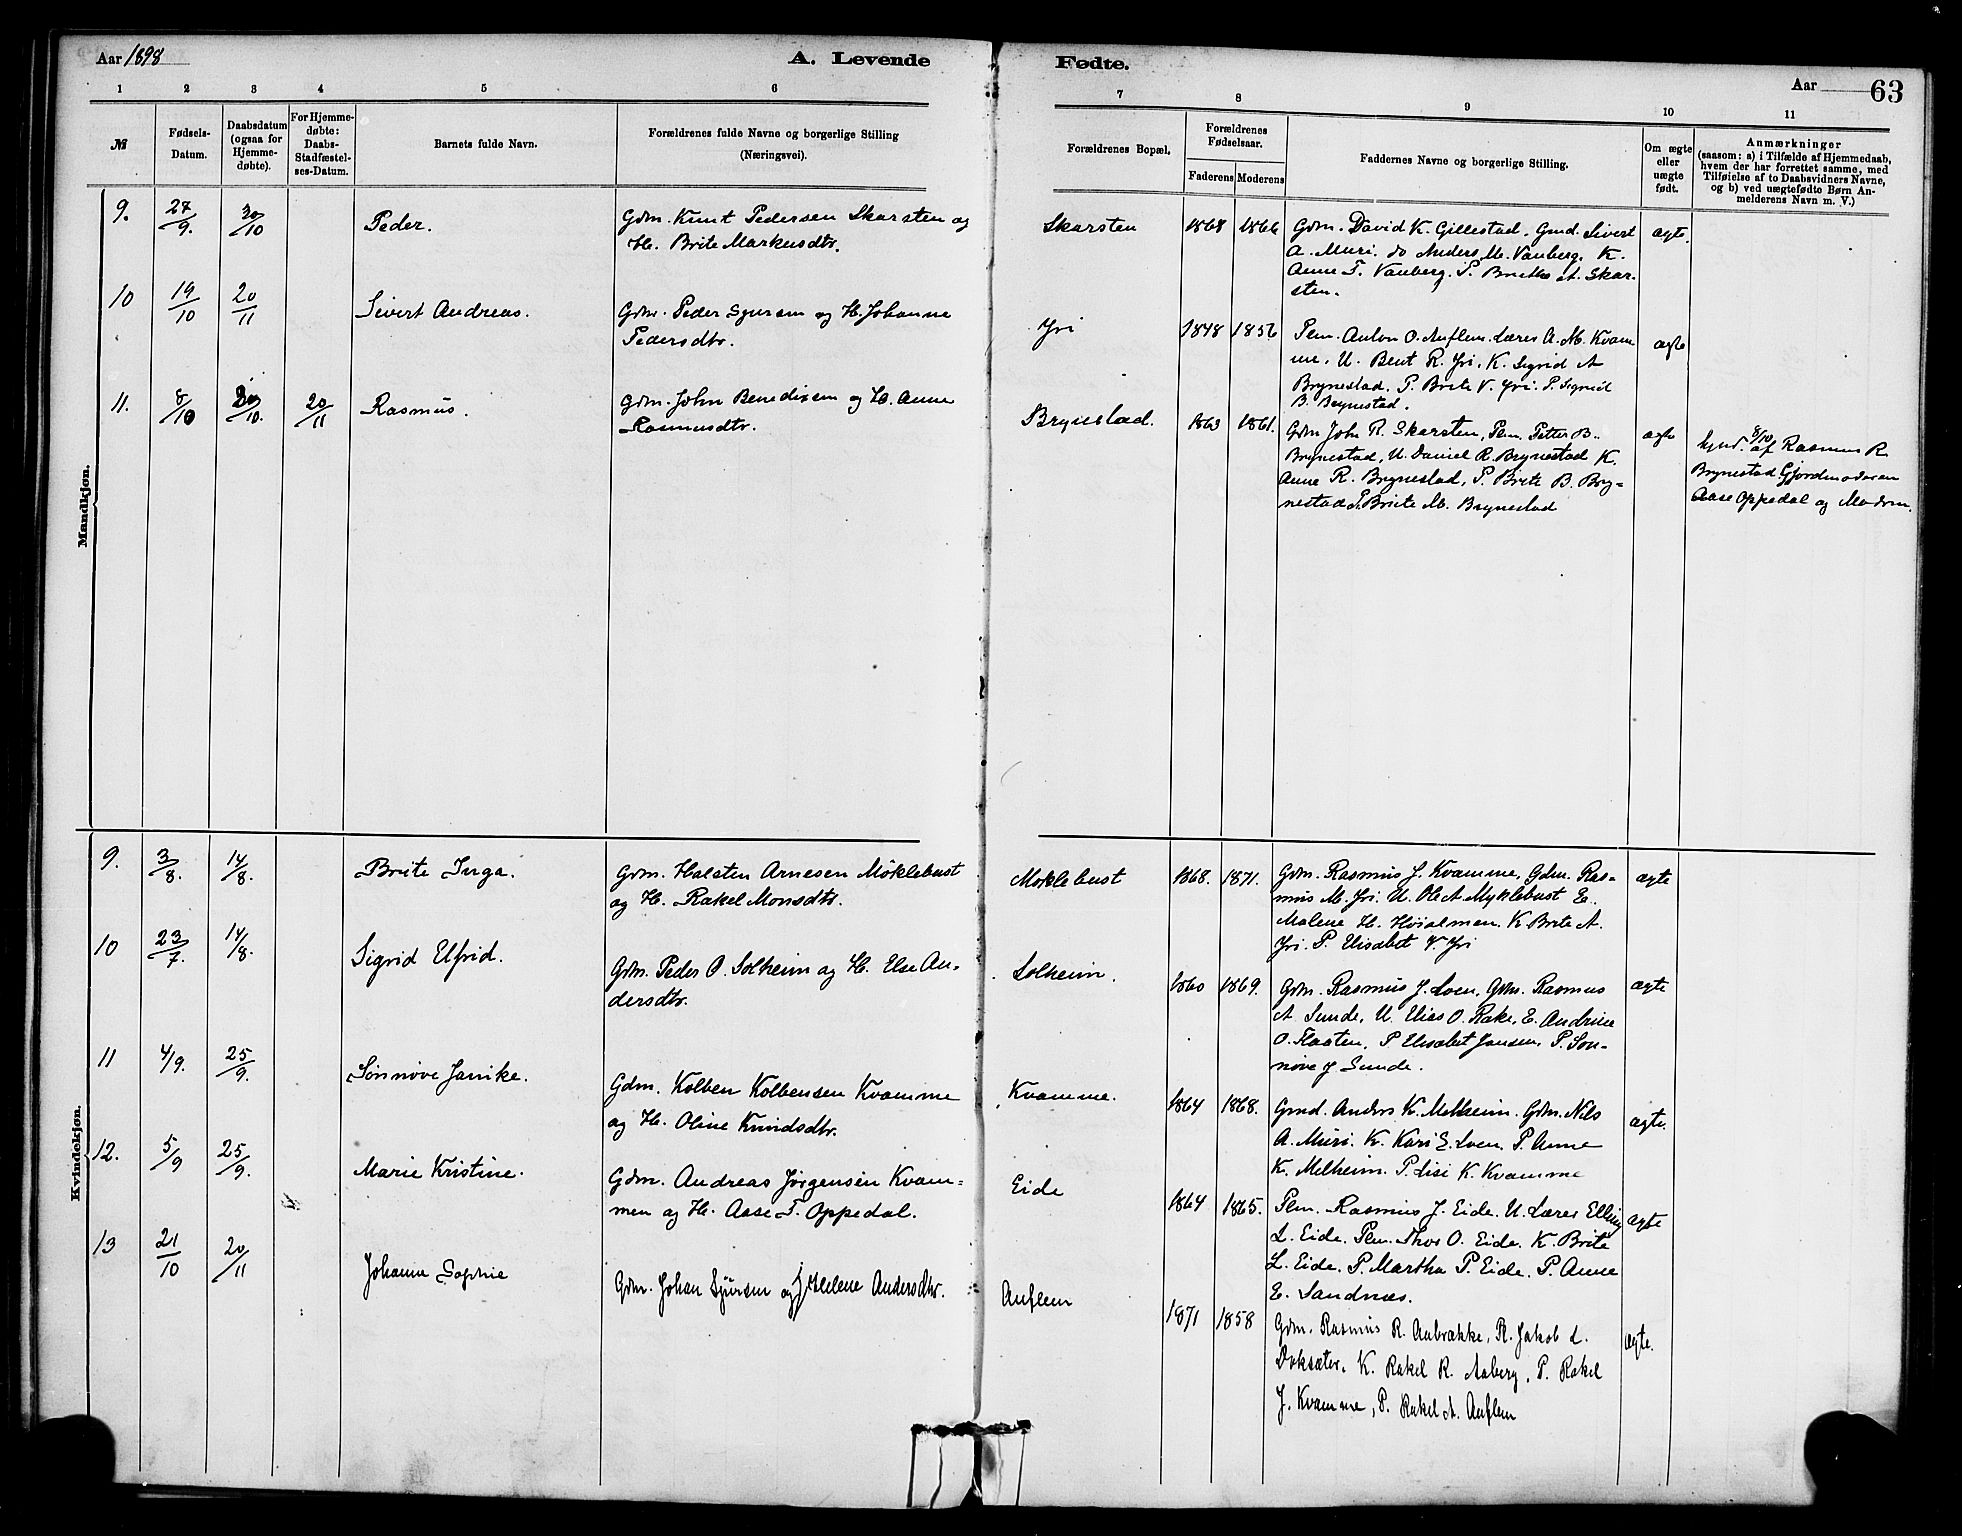 Aar 1898
A. Levende Fødte.
Aar
63
1 2 3 4 5 6 7 8 9 10 11
№
Fødsels-
Datum.
Daabsdatum
(ogsaa for
Hjemme-
døbte).
For Hjemme-
døbte:
Daabs-
Stadfæstel-
ses-Datum.
Barnets fulde Navn.
Forældrenes fulde Navne og borgerlige Stilling
(Næringsvei).
Forældrenes Bopæl,
Forældrenes
Fødselsaar.
Faderens Moderens
Faddernes Navne og borgerlige Stilling.
Om ægte
eller
uægte
født.
Anmærkninger
(saasom: a) i Tilfælde af Hjemmedaab,
hvem der har forrettet samme, med
Tilføielse af to Daabsvidners Navne,
og b) ved uægtefødte Børn An-
melderens Navn m. V.)
Mandkjøn.
9. 27/9. 30/10 Peder.
Gdm. Knut Pedersen Skarsten og
H. Brite Markusdtr.
Skarsten 1868 1866
Gdm. David K. Gillestad, Gmd. Sivert
A. Muri, do Anders M. Vanberg, K.
Anne T. Vanberg. P. Brithe A. Skar-
sten.
ægte.
10 19/10 20/11 Sivert Andreas.
Gdm. Peder Sjursen og H. Johanne
Pedersdtr.
Yri 1848 1856
Plm. Anton O. Auflem. Lærer A. M. Kvam
me, U. Bent R. Yri, K. Sigrid A
Brynestad. P. Brite V. Yri. P. Signid
B. Brynestad.
ægte
11. 8/10 30/10. 20/11 Rasmus.
Gdm. John Benediksen og H. Anne
Rasmusdtr.
Brynestad. 1863 1861.
Gdm John R. Skarsten, Plm. Petter B.
Brynestad, U. Daniel R. Brynestad K.
Anne R. Brynestad, P. Brite B. Bry-
nestad P. Brite M. Brynestad
ægte
hjmd. 8/10 af Rasmus R.
Brynestad Gjordmoderen
Aase Oppedal og Modren.
Kvindekjøn.
9. 3/8. 14/8. Brite Inga.
Gdm. Halsten Arnesen Møklebust
og H. Rakel Monsdtr.
Møklebust 1868. 1871.
Gdm. Rasmus J. Kvamme, Gdm. Ras-
mus M. Yri. U. Ole A Myklebust E.
Malene H. Høialmen. K Brite A.
Yri. P. Elisabet V. Yri
ægte
10 23/7. 14/8. Sigrid Elfrid.
Gdm. Peder O. Solheim og H. Else An-
dersdtr.
Solheim. 1860 1869.
Gdm. Rasmus J. Loen, Gdm. Rasmus
A Sunde, U. Elias O. Rake, E. Andrine
O. Flaaten, P Elisabet Jansen, P. Søn-
nøve J Sunde.
ægte
11 4/9. 25/9. Sønnøve Janike.
Gdm. Kolben Kolbensen Kvamme
og H. Oline Knudsdtr.
Kvamme. 1864 1868.
Gmd. Anders K. Melheim. Gdm. Nils
A. Muri. K. Kari E. Loen, P. Anne
K. Melheim. P. Lisi K. Kvamme
ægte.
12. 5/9 25/9. Marie Kristine.
Gdm. Andreas Jørgensen Kvam-
men og H. Aase T. Oppedal.
Eide 1864 1865.
Plm. Rasmus J. Eide. U. Lærer Elling
L. Eide. Plm. Thor O. Eide. K. Brite
L. Eide. P. Martha P. Eide. P. Anne
E. Sandnæs.
ægte
13 21/10 20/11 Johanne Sophie
Gdm. Johan Sjursen og H. Helene Andersdtr.
Auflem 1871 1858
Gdm. Rasmus R. Aabrække, R. Jakob L.
Doksæter, K. Rakel R. Aaberg, P. Rakel
J. Kvamme, P. Rakel A. Auflem
ægte.